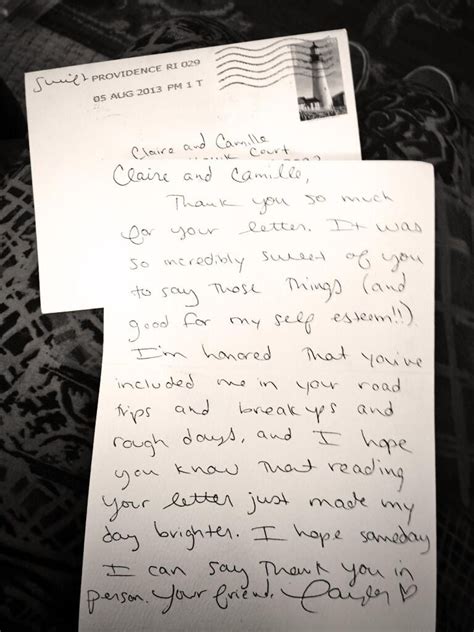 Swift
PROVIDENCE RI 029
05 AUG 2013 PM 1 T
Claire and Camille
Court
Claire and Camille,
Thank you so much
for your letter. It was
so incredibly sweet of you
to say those things (and
good for my self esteem!!).
I'm honored that you've
included me in your road
trips and breakups and
rough days, and I hope
you know that reading
your letter just made my
day brighter. I hope someday
I can say thank you in
person. Your friend, Taylor ♡